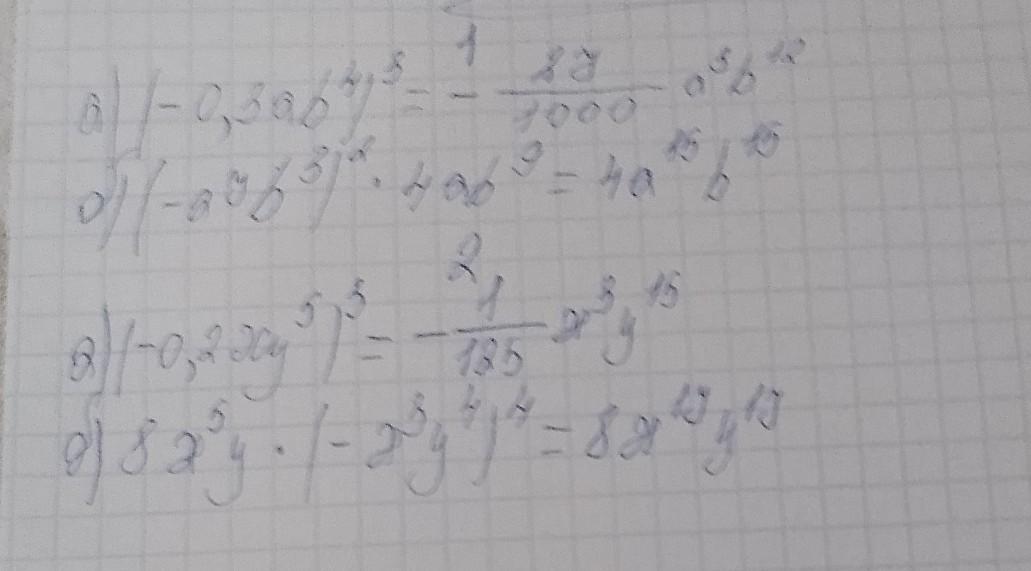 1
а) (-0,3ab⁴)³ = - 27/1000 a³b¹²
б) (-a⁷b³)² · 4ab⁹ = 4a¹⁵b¹⁵
2
а) (-0,2xy⁵)³ = - 1/125 x³y¹⁵
б) 8x⁵y · (-x³y⁴)⁴ = 8x¹⁷y¹⁷